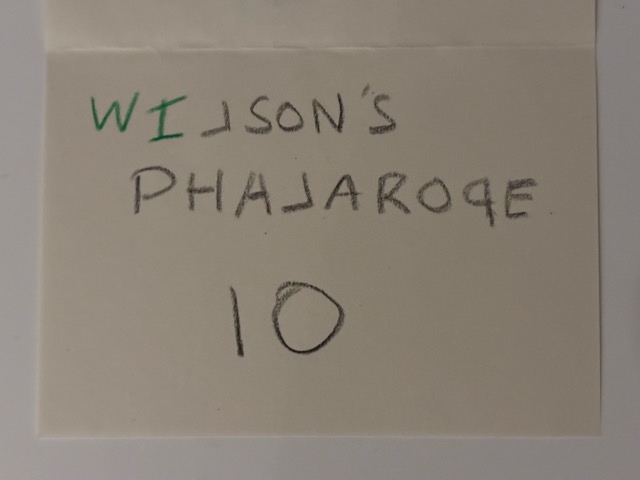 WILSON'S
PHALAROPE
10